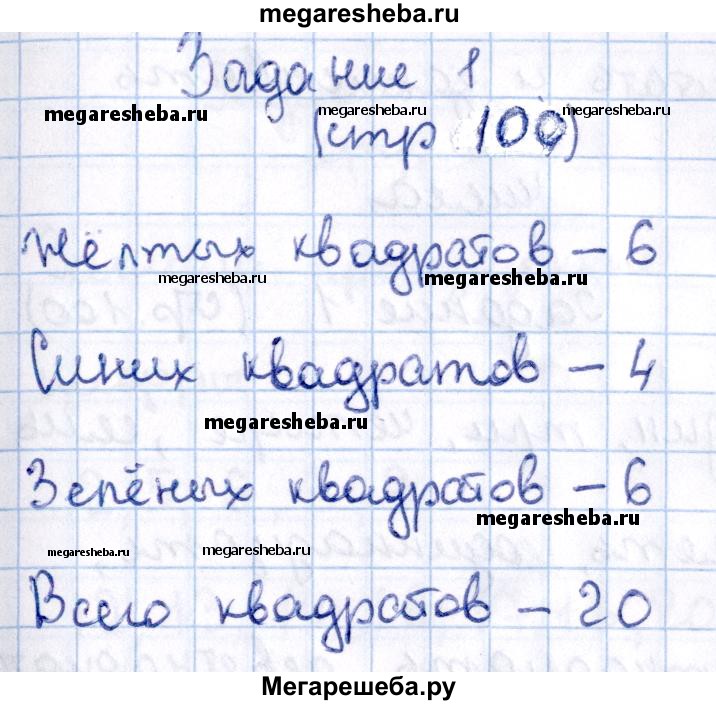 megaresheba.ru
Задание 1
megaresheba.ru
megaresheba.ru
megaresheba.ru
(стр 100)
Жёлтых квадратов – 6
megaresheba.ru
megaresheba.ru
Синих квадратов – 4
megaresheba.ru
Зелёных квадратов – 6
megaresheba.ru
megaresheba.ru
megaresheba.ru
Всего квадратов – 20
Мегарешеба.ру